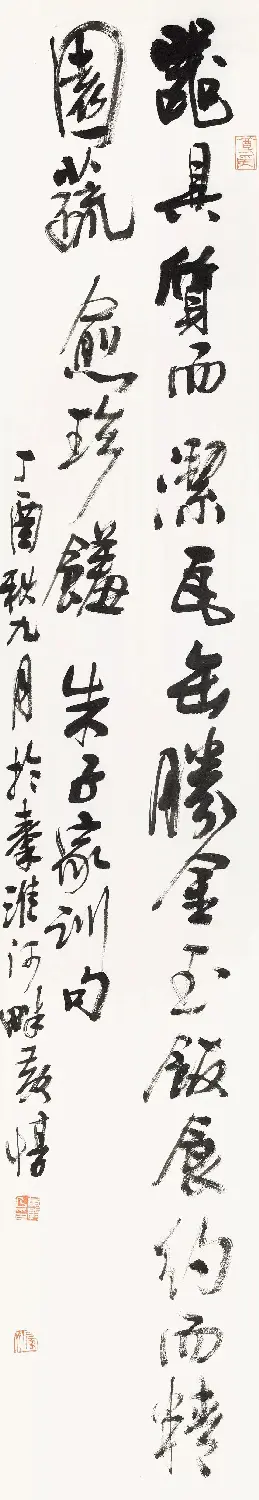 器具質而潔瓦缶勝金玉飯食約而精
園蔬愈珍饈 朱子家訓句
丁酉秋九月於秦淮河畔黃惇